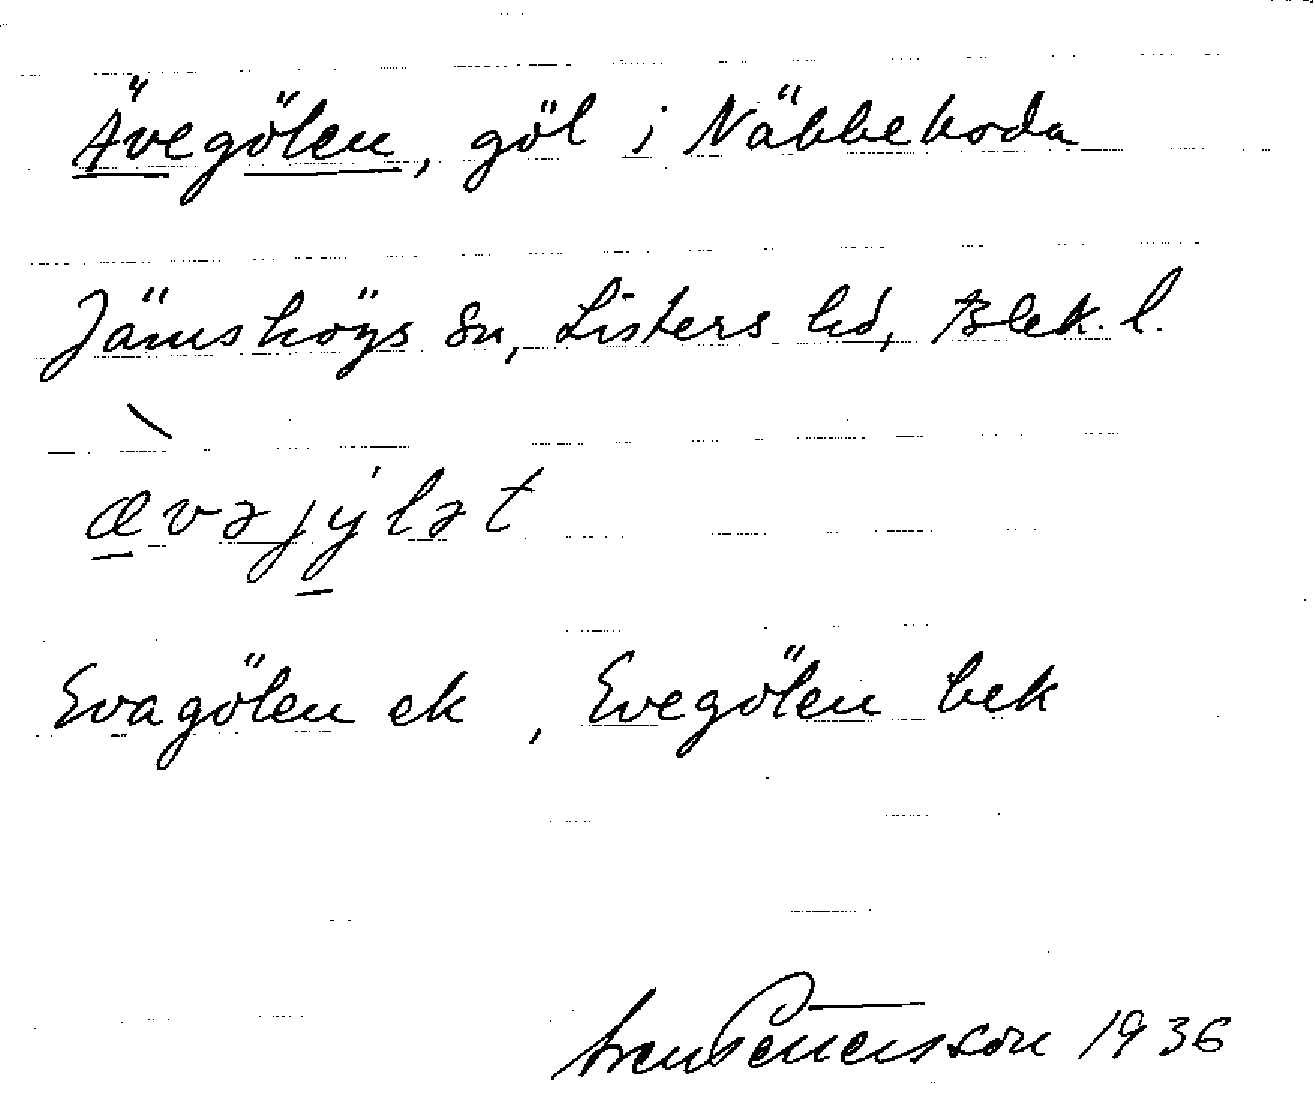 Ävegölen, göl i Näbbeboda
Jämshögs sn, Listers hd, Blek. l.
ævəjýlət
Evagölen ek, Evegölen bek
Sven Benson 1936